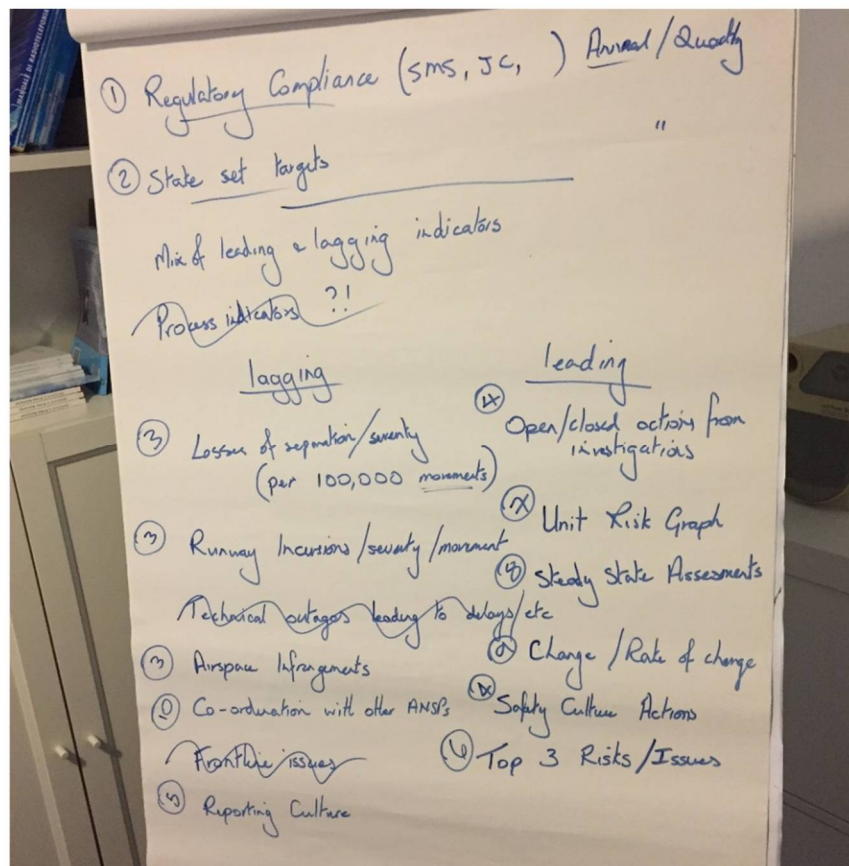 MANUALE DI RADIOTELEFONIA
① Regulatory Compliance (SMS, JC, ) Annual/Quartly
② State set targets "
Mix of leading & lagging indicators
Process indicators ?!
lagging
③ Losses of separation/severity
(per 100,000 movements)
③ Runway Incursions/severity/movement
Technical outages leading to delays/etc
③ Airspace Infringements
⑩ Co-ordination with other ANSPs
Frontline issues
⑤ Reporting Culture
leading
④ Open/closed actions from
investigations
⑦ Unit Risk Graph
⑧ Steady State Assesments
⑨ Change/Rate of change
④ Safety Culture Actions
⑥ Top 3 Risks/Issues